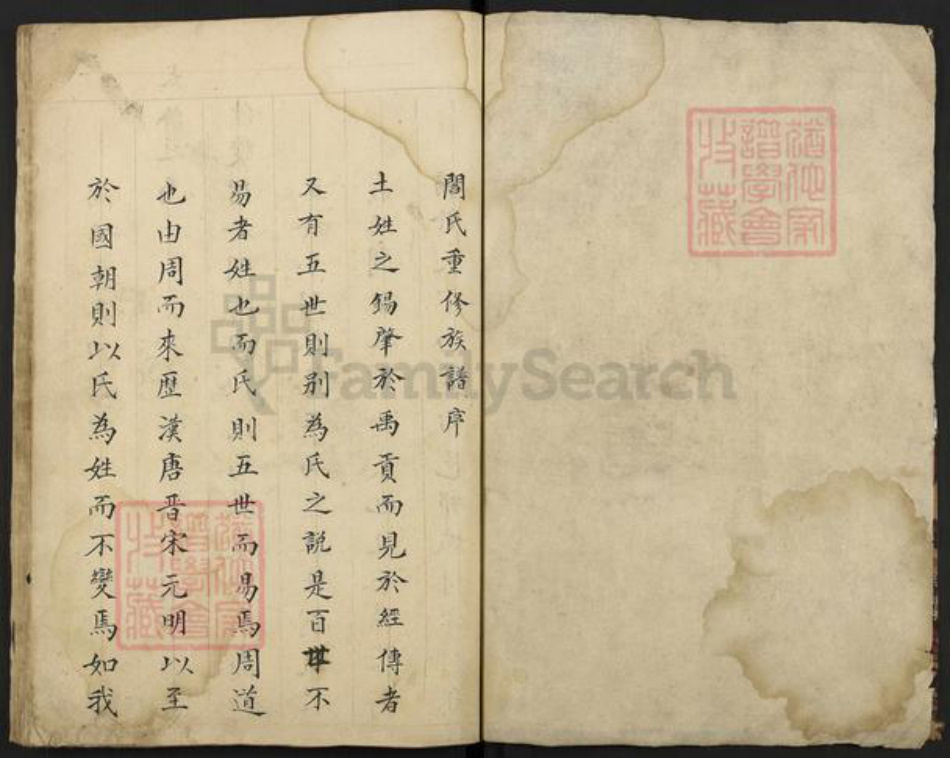 閻氏重修族譜序
土姓之錫肇於禹貢而見於經傳者
又有五世則别為氏之説是百世不
易者姓也而氏則五世而易焉周道
也由周而來歷漢唐晋宋元明以至
於國朝則以氏為姓而不變焉如我
FamilySearch